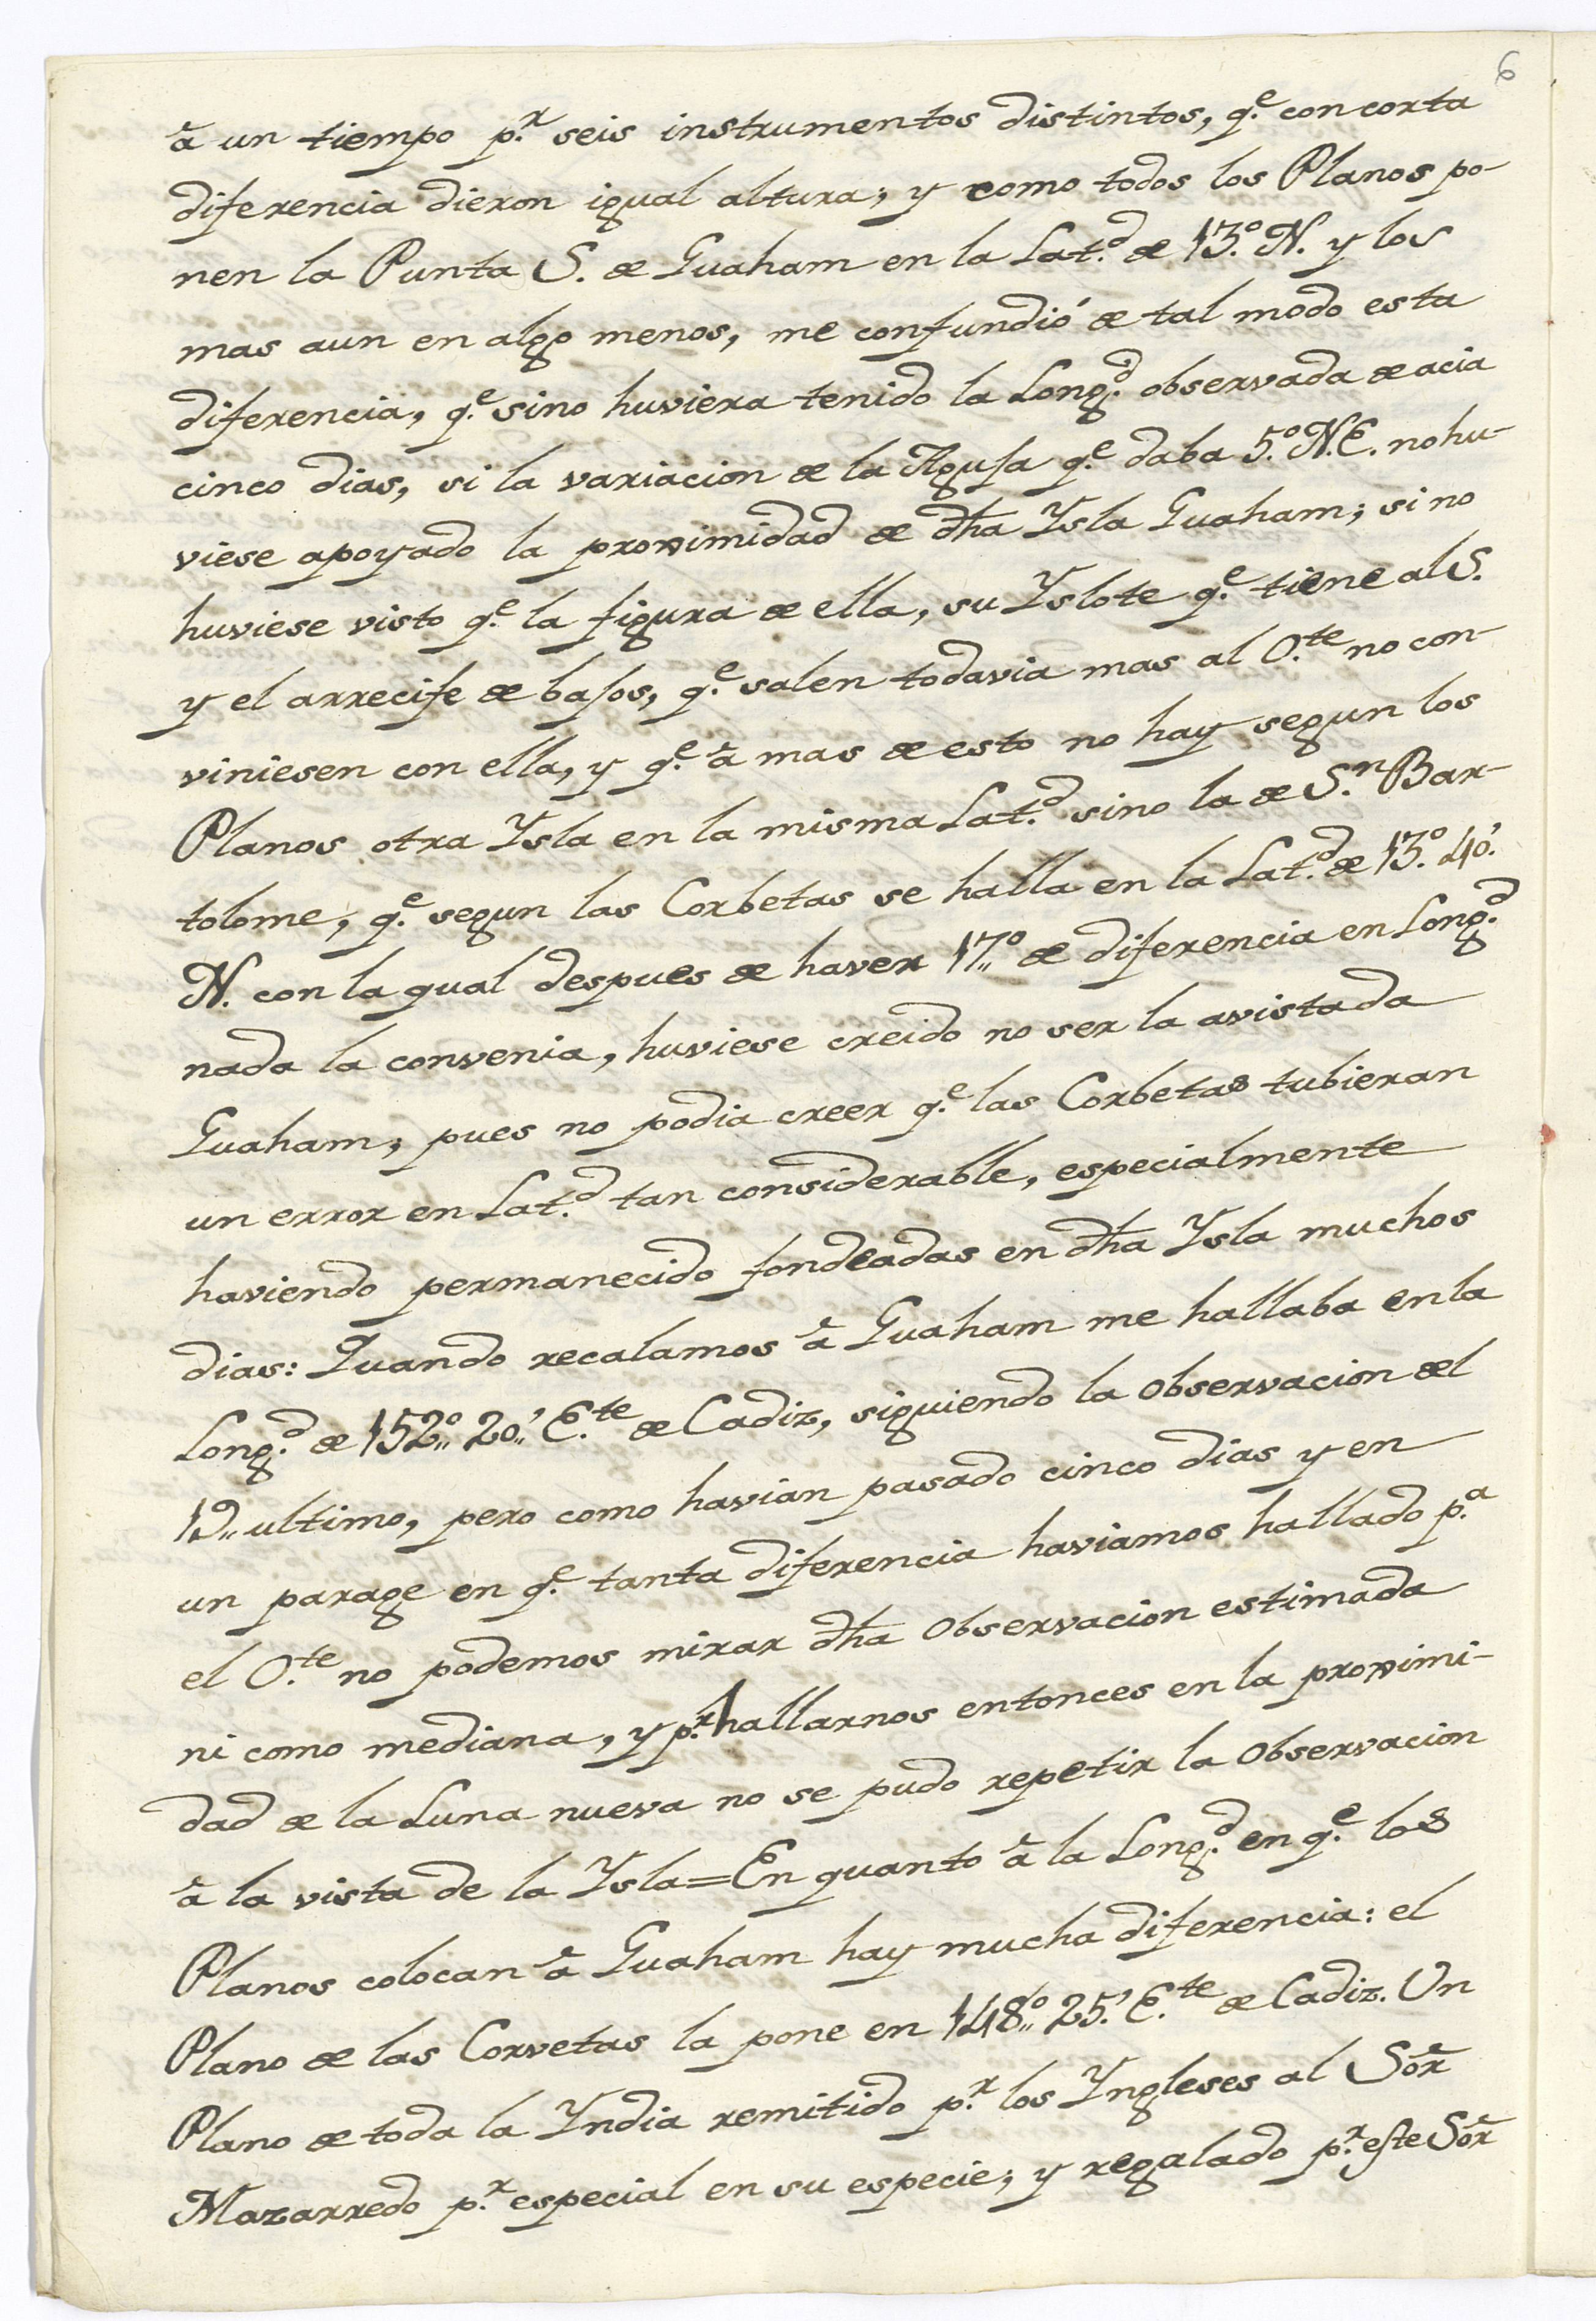 6
à un tiempo p.r seis instrumentos distintos, q.e con corta
diferencia dieron igual altura; y como todos los Planos po-
nen la Punta S. de Guaham en la Lat.d de 13.º N. y los
mas aun en algo menos, me confundió de tal modo esta
diferencia, q.e sino huviera tenido la Long.d observada de acia
cinco dias, si la variacion de la Aguja q.e daba 5.º N.E. no hu-
viese apoyado la proximidad de dha Ysla Guaham; si no
huviese visto q.e la figura de ella, su Yslote q.e tiene al S.
y el arrecife de bajos, q.e salen todavia mas al O.te no con-
viniesen con ella, y q.e à mas de esto no hay segun los
Planos otra Ysla en la misma Lat.d sino la de S.n Bar-
tolome, q.e segun las Corbetas se halla en la Lat.d de 13.º 40.'
N. con la qual despues de haver 17,,º de diferencia en Long.d
nada la convenia, huviese creido no ser la avistada
Guaham; pues no podia creer q.e las Corbetas tubieran
un error en Lat.d tan considerable, especialmente
haviendo permanecido fondeadas en dha Ysla muchos
dias: Quando recalamos à Guaham me hallaba en la
Long.d de 152,,º 20,,' E.te de Cadiz, siguiendo la observacion del
19,, ultimo, pero como havian pasado cinco dias y en
un parage en q.e tanta diferencia haviamos hallado p.a
el O.te no podemos mirar dha Observacion estimada
ni como mediana, y p.r hallarnos entonces en la proximi-
dad de la Luna nueva no se pudo repetir la Observacion
à la vista de la Ysla=En quanto à la Long.d en q.e los
Planos colocan à Guaham hay mucha diferencia: el
Plano de las Corvetas la pone en 148,,º 25.' E.te de Cadiz. Un
Plano de toda la Yndia remitido p.r los Yngleses al Sor
Mazarredo p.r especial en su especie; y regalado p.r este Sor